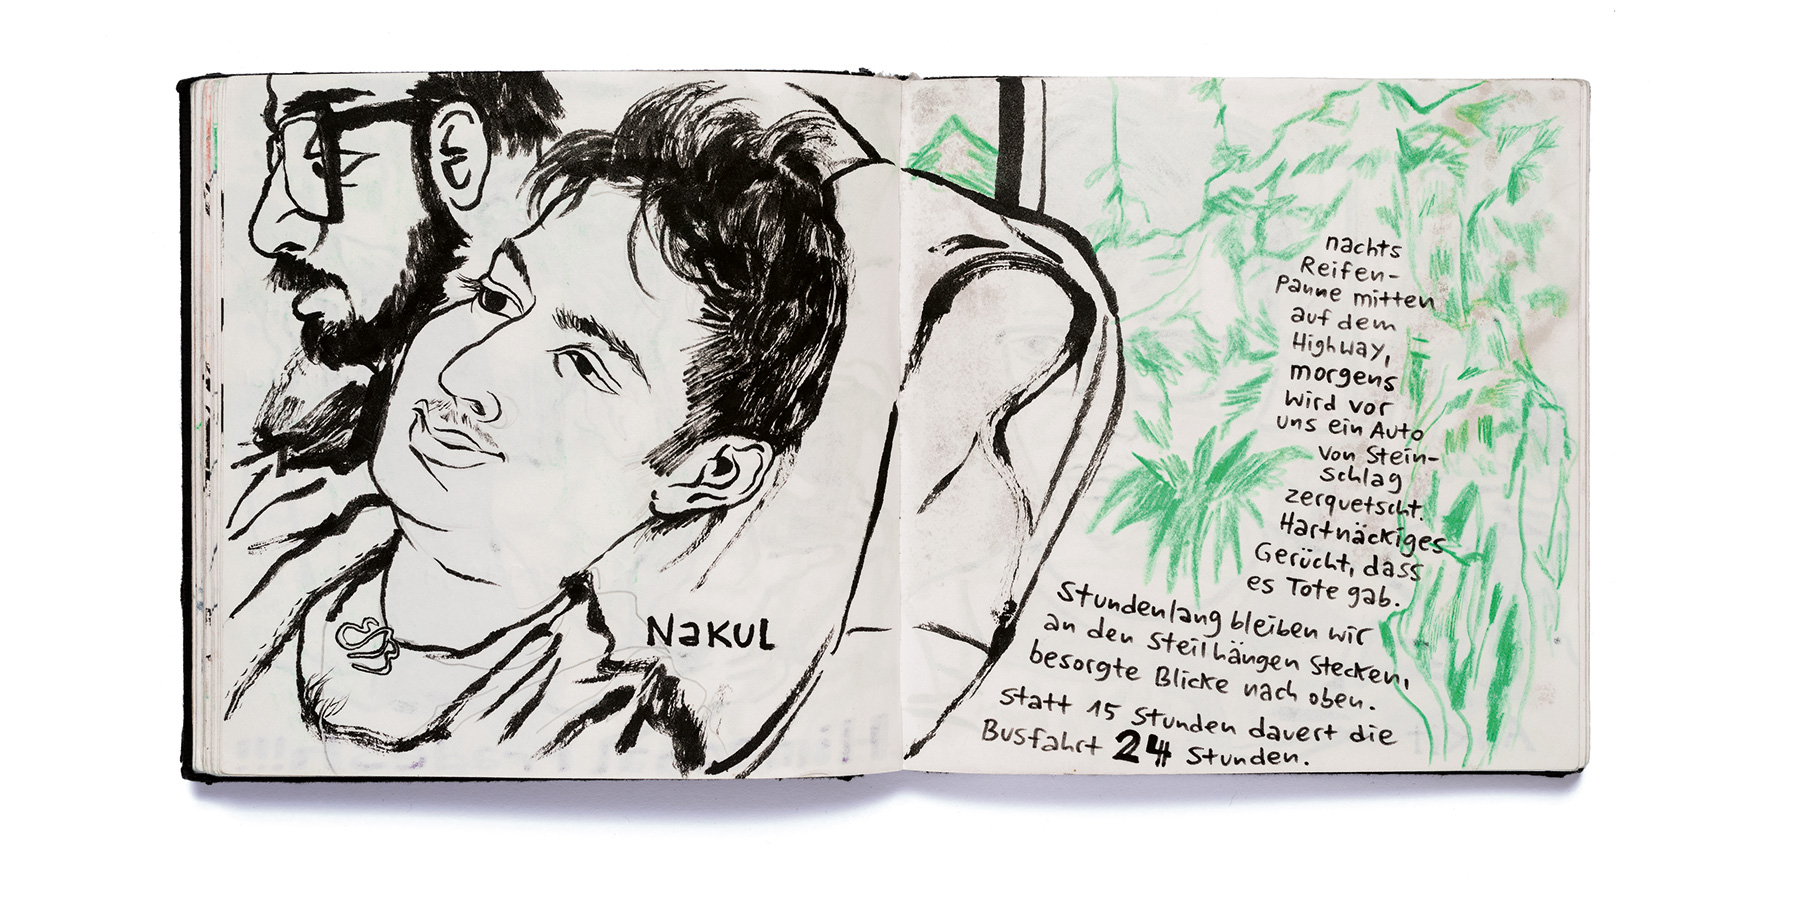 NAKUL
nachts
Reifen-
Panne mitten
auf dem
Highway,
morgens
wird vor
uns ein Auto
von Stein-
schlag
zerquetscht.
Hartnäckiges
Gerücht, dass
es Tote gab.
Stundenlang bleiben wir
an den Steilhängen stecken,
besorgte Blicke nach oben.
Statt 15 Stunden dauert die
Busfahrt 24 Stunden.